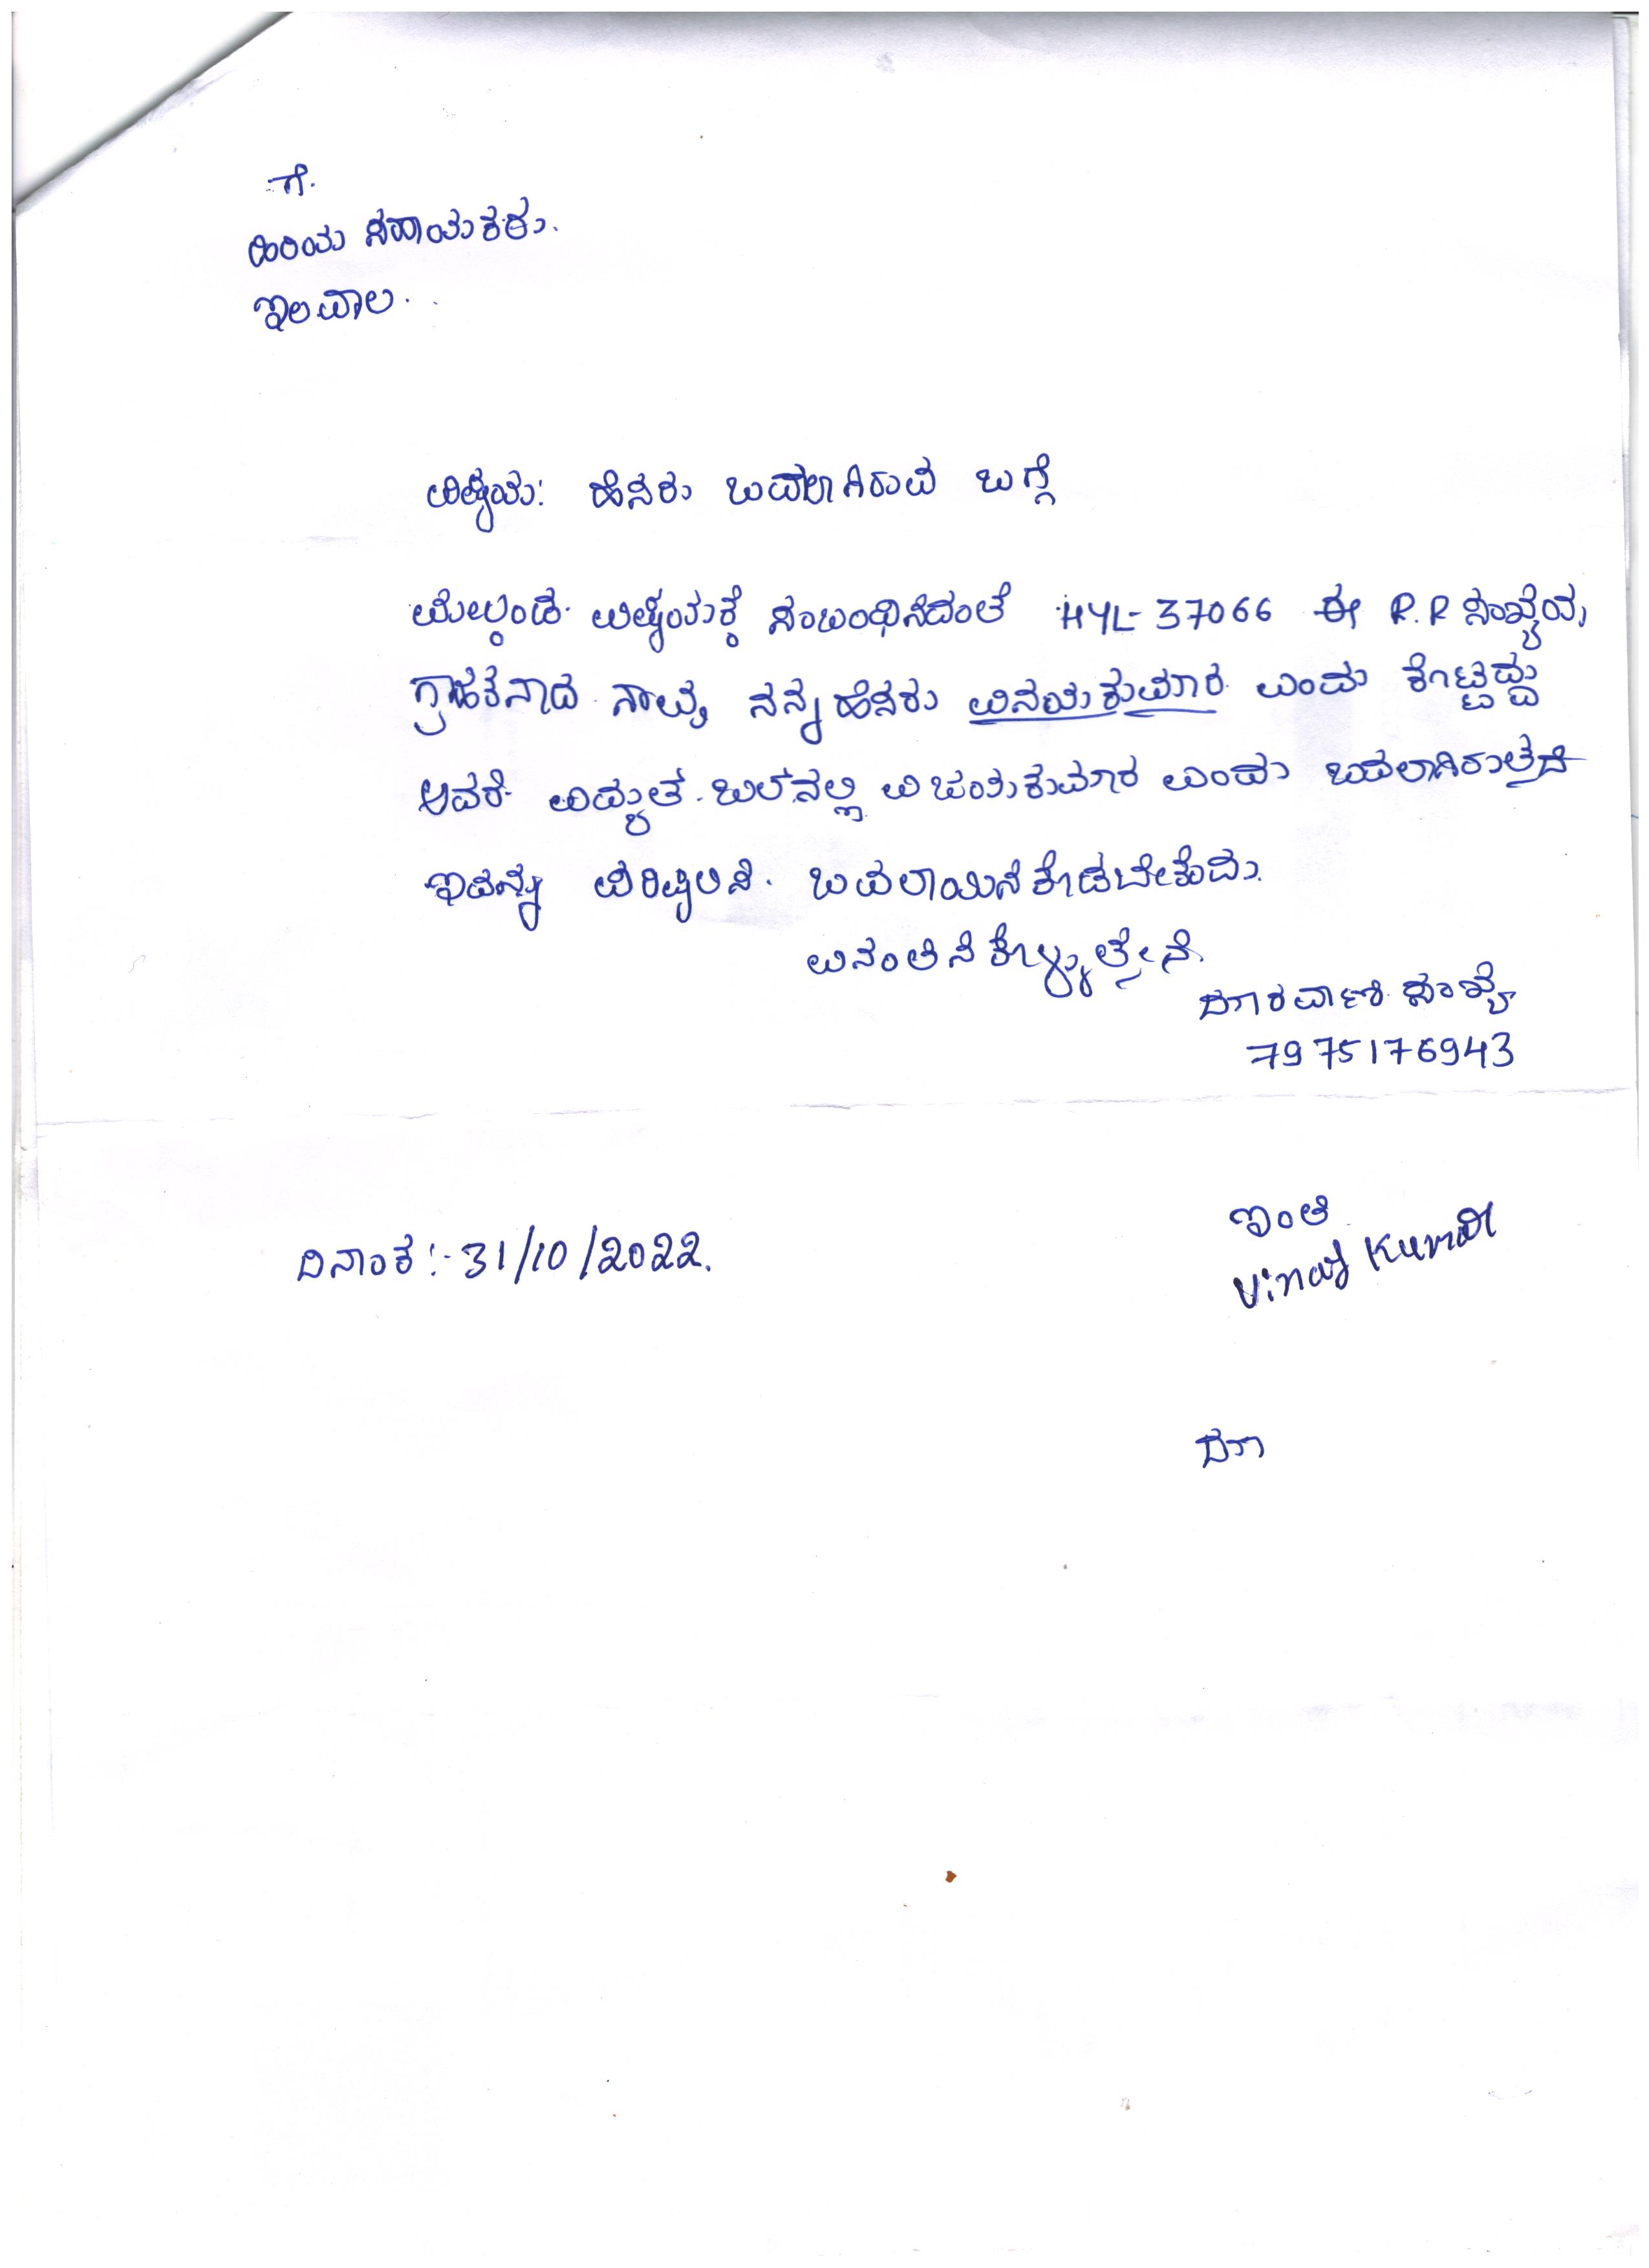 ಗೆ.
ಹಿರಿಯ ಸಹಾಯಕರು.
ಇಲವಾಲ.
ವಿಷಯ: ಹೆಸರು ಬದಲಾಗಿರುವ ಬಗ್ಗೆ
ಮೇಲ್ಕಂಡ ವಿಷಯಕ್ಕೆ ಸಂಬಂಧಿಸಿದಂತೆ HYL-37066 ಈ R.R ಸಂಖ್ಯೆಯ
ಗ್ರಾಹಕನಾದ ನಾವು ನನ್ನ ಹೆಸರು ವಿನಯಕುಮಾರ ಎಂದು ಕೊಟ್ಟಿದ್ದು
ಆದರೆ ವಿದ್ಯುತ್ ಬಿಲ್‌ನಲ್ಲಿ ವಿಜಯಕುಮಾರ ಎಂದು ಬದಲಾಗಿರುತ್ತದೆ
ಇದನ್ನು ಪರಿಶೀಲಿಸಿ. ಬದಲಾಯಿಸಿಕೊಡಬೇಕೆಂದು.
ವಿನಂತಿಸಿಕೊಳ್ಳುತ್ತೇನೆ.
ದೂರವಾಣಿ ಸಂಖ್ಯೆ
7975176943
ಇಂತಿ
ದಿನಾಂಕ :- 31/10/2022.
Vinay Kumar
ದೂ